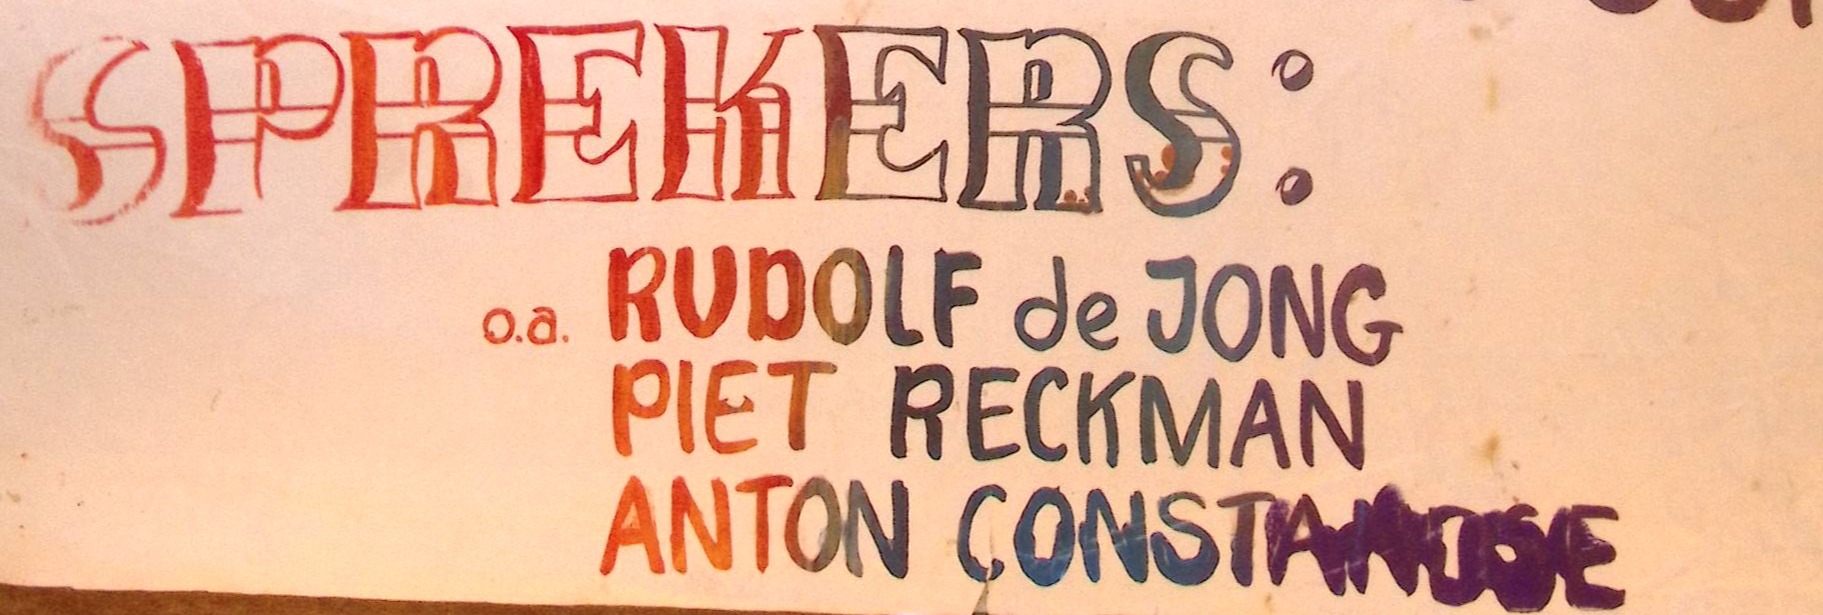 SPREKERS:
o.a. RUDOLF de JONG
PIET RECKMAN
ANTON CONSTANDSE